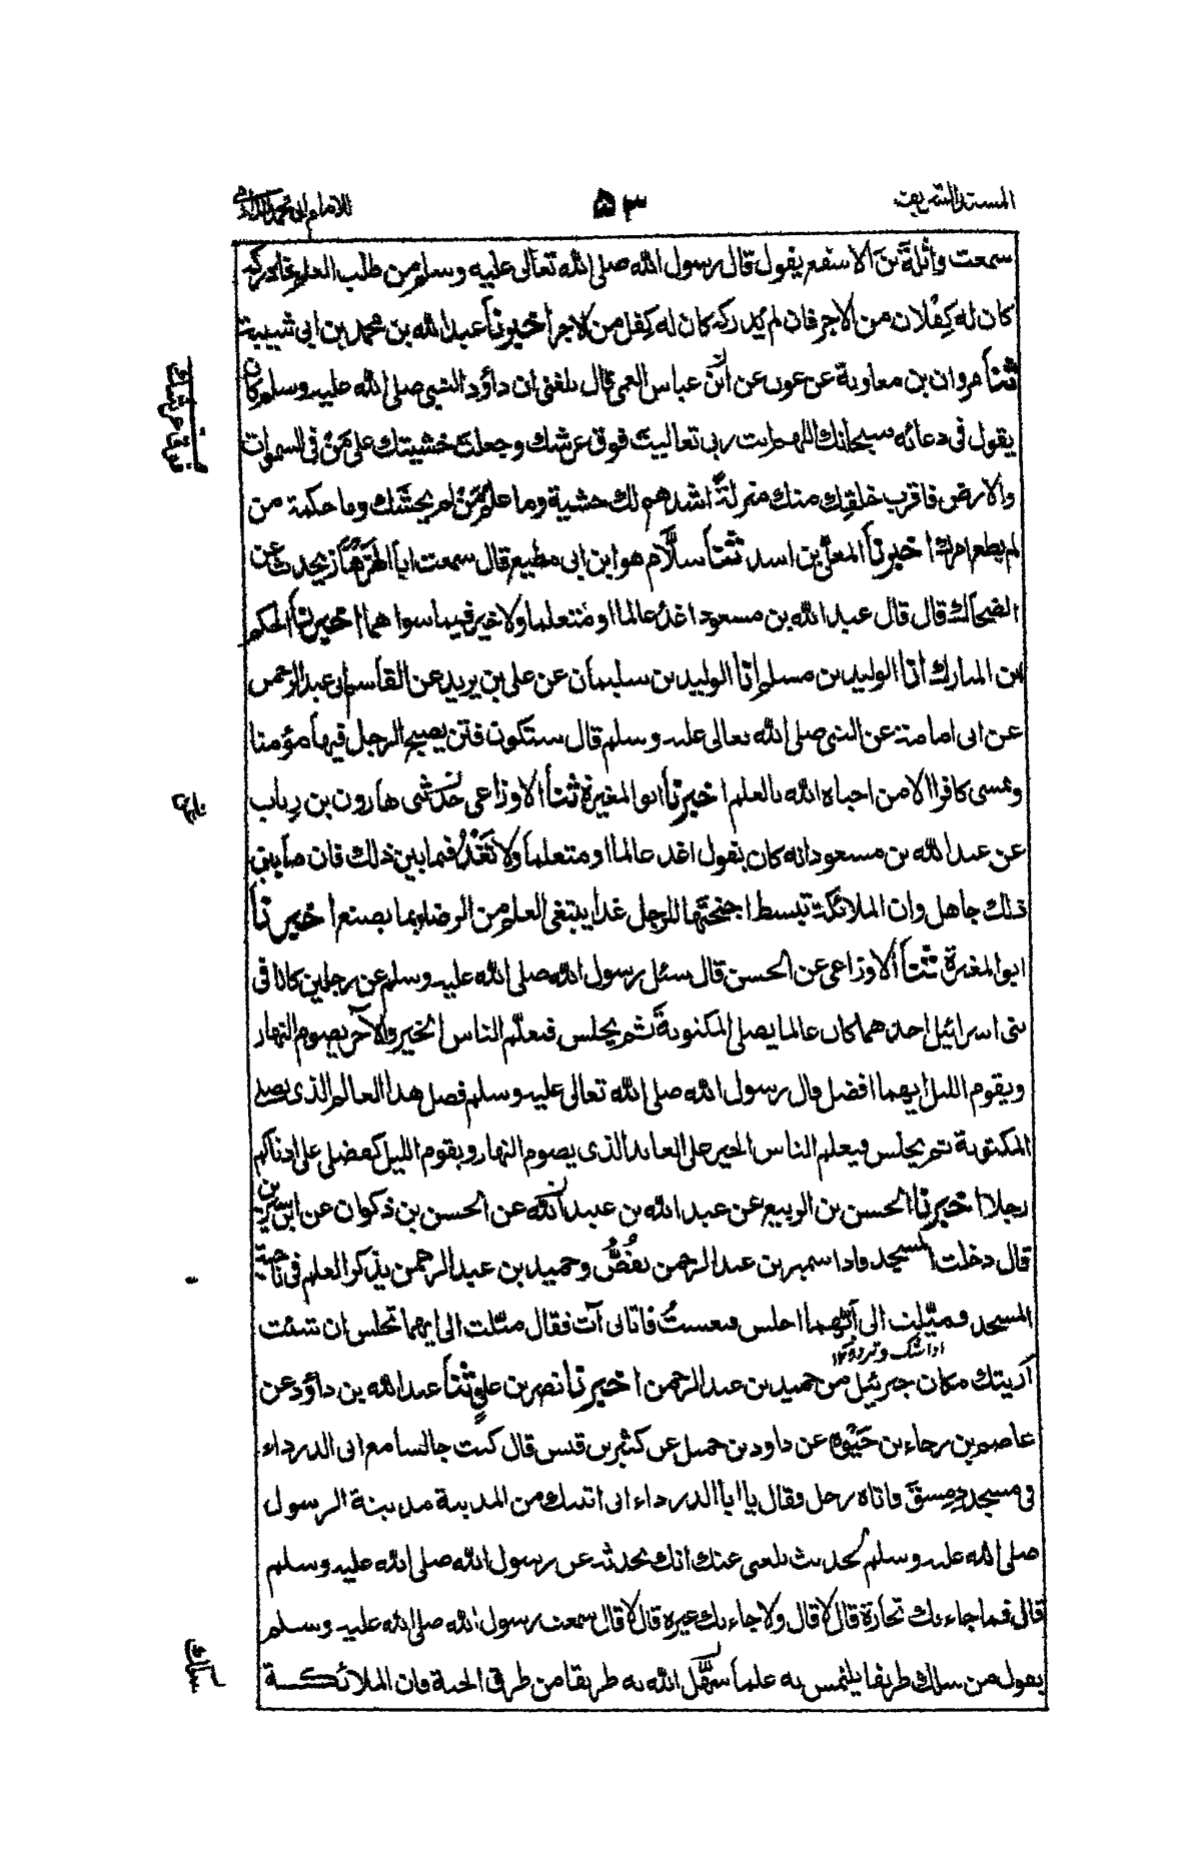 المسند الشريف ٥٣ للامام ابى محمد الدارمى
سمعت واثلة بن الاسقع يقول قال رسول الله صلى الله تعالى عليه وسلم من طلب العلم فادركه
كان له كفلان من الاجر فان لم يدركه كان له كفل من الاجر اخبرنا عبد الله بن محمد بن ابى شيبة
ثنا مروان بن معاوية عن عون عن ابن عباس العمى قال بلغنى ان داؤد النبى صلى الله عليه وسلم كان
يقول فى دعائه سبحانك اللهم انت ربى تعاليت فوق عرشك وجعلت خشيتك على من فى السموات
والارض فاقرب خلقك منك منزلة اشدهم لك خشية وما علم من لم يخشك وما حكمة من
لم يطع امرك اخبرنا المعلى بن اسد ثنا سلام هو ابن ابى مطيع قال سمعت ابا الهزهاز يحدث عن
الضحاك قال قال عبد الله بن مسعود اغد عالما او متعلما ولا خير فيما سواهما اخبرنا الحكم
بن المبارك انا الوليد بن مسلم انا الوليد بن سليمان عن على بن يزيد عن القاسم ابى عبد الرحمن
عن ابى امامة عن النبى صلى الله تعالى عليه وسلم قال ستكون فتن يصبح الرجل فيها مؤمنا
ويمسى كافرا الا من احياه الله بالعلم اخبرنا ابو المغيرة ثنا الاوزاعى حدثنى هارون بن رياب
عن عبد الله بن مسعود انه كان يقول اغد عالما او متعلما ولا تغد فيما بين ذلك فان ما بين
ذلك جاهل وان الملائكة تبسط اجنحتها للرجل غدا يبتغى العلم من الرضاء بما يصنع اخبرنا
ابو المغيرة ثنا الاوزاعى عن الحسن قال سئل رسول الله صلى الله عليه وسلم عن رجلين كانا فى
بنى اسرائيل احدهما كان عالما يصلى المكتوبة ثم يجلس فيعلم الناس الخير والآخر يصوم النهار
ويقوم الليل ايهما افضل قال رسول الله صلى الله تعالى عليه وسلم فضل هذا العالم الذى يصلى
المكتوبة ثم يجلس فيعلم الناس الخير على العابد الذى يصوم النهار ويقوم الليل كفضلى على ادناكم
رجلا اخبرنا الحسن بن الربيع عن عبد الله بن عبيد الله عن الحسن بن ذكوان عن ابن سيرين
قال دخلت المسجد واذا سمير بن عبد الرحمن يقص وحميد بن عبد الرحمن يذكر العلم فى ناحية
المسجد فميلت الى ايهما اجلس فنعست فاتانى آت فقال ميلت الى ايهما تجلس ان شئت
اذا شك وتردد ١٢
أريتك مكان جبرئيل من حميد بن عبد الرحمن اخبرنا نصر بن على ثنا عبد الله بن داؤد عن
عاصم بن رجاء بن حيوه عن داود بن جميل عن كثير بن قيس قال كنت جالسا مع ابى الدرداء
فى مسجد دمشق فاتاه رجل فقال يا ابا الدرداء انى اتيتك من المدينة مدينة الرسول
صلى الله عليه وسلم لحديث بلغنى عنك انك تحدثه عن رسول الله صلى الله عليه وسلم
قال فما جاء بك تجارة قال لا قال ولا جاء بك غيره قال لا قال سمعت رسول الله صلى الله عليه وسلم
يقول من سلك طريقا يلتمس به علما سهل الله به طريقا من طرق الجنة وان الملائكة